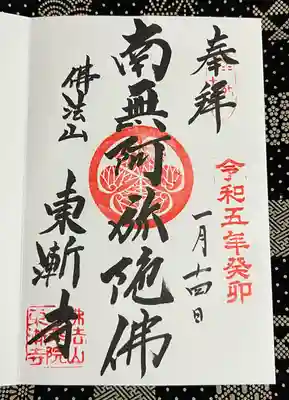 奉拝
令和五年癸卯
一月十四日
南無阿弥陀佛
佛法山
東漸寺